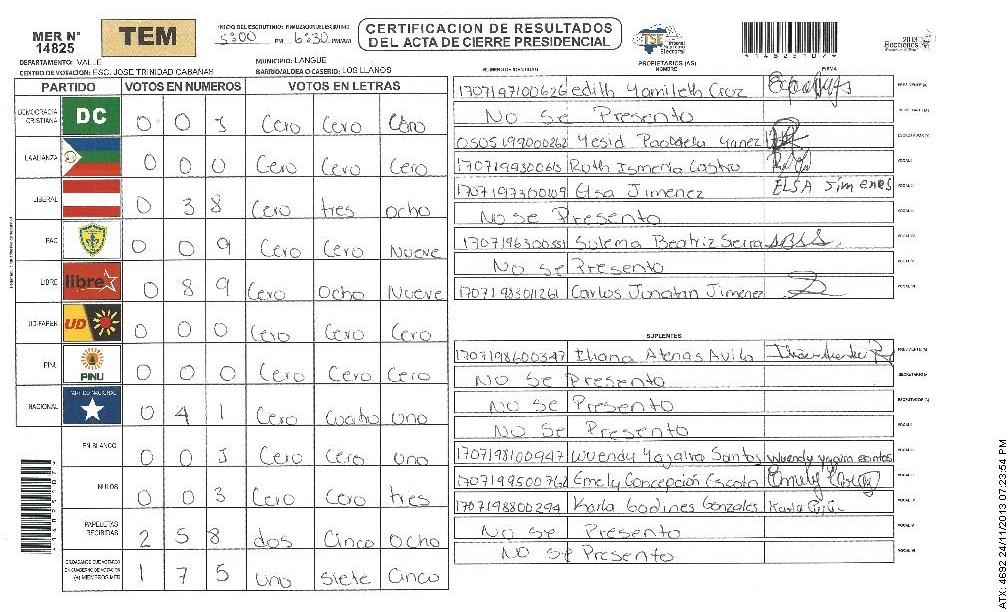 MER N° 14825
TEM
INICIO DEL ESCRUTINIO: FINALIZACION DEL ESCRUTINIO
5:00 PM 6:30 PM/AM
CERTIFICACION DE RESULTADOS
DEL ACTA DE CIERRE PRESIDENCIAL
TSE Tribunal Supremo Electoral
2013 Elecciones
DEPARTAMENTO: VALLE
MUNICIPIO: LANGUE
CENTRO DE VOTACION: ESC. JOSE TRINIDAD CABAÑAS
BARRIO/ALDEA O CASERIO: LOS LLANOS
PARTIDO VOTOS EN NUMEROS VOTOS EN LETRAS
DEMOCRACIA CRISTIANA DC 0 0 1 Cero Cero Cero
LA ALIANZA 0 0 0 Cero Cero Cero
LIBERAL 0 3 8 Cero tres ocho
PAC 0 0 9 Cero Cero Nueve
LIBRE libre 0 8 9 Cero Ocho Nueve
UD-FAPER UD 0 0 0 Cero Cero Cero
PINU PINU 0 0 0 Cero Cero Cero
NACIONAL PARTIDO NACIONAL 0 4 1 Cero Cuatro uno
EN BLANCO 0 0 1 Cero Cero uno
NULOS 0 0 3 Cero Cero tres
PAPELETAS RECIBIDAS 2 5 8 dos Cinco Ocho
CIUDADANOS QUE VOTARON EN CUADERNO DE VOTACION (+) MIEMBROS MER 1 7 5 uno siete Cinco
NUMERO DE IDENTIDAD PROPIETARIOS (AS) NOMBRE FIRMA
1707197100626 edith Yamileth Cruz PRESIDENTE (A)
No Se Presento SECRETARIO (A)
0505199000262 Yesid Paobdela Yanez ESCRUTADOR (A)
1707199300613 Ruth Ismeria Castro VOCAL I
1707197300109 Elsa Jimenez ELSA Jimenes VOCAL II
No se Presento VOCAL III
1707196300551 Sulema Beatriz Sierra VOCAL IV
No se Presento VOCAL V
1707198301261 Carlos Jonatan Jimenez VOCAL VI
SUPLENTES
1707198600347 Iliana Atenas Avila PRESIDENTE (A)
No Se Presento SECRETARIO (A)
No se Presento ESCRUTADOR (A)
No se Presento VOCAL I
1707198100947 Wuendy Yajaira Santos Wuendy yajaira santos VOCAL II
1707199500762 Emely Concepción Escoto VOCAL III
1707198800294 Karla Godines Gonzales VOCAL IV
No se Presento VOCAL V
No se Presento VOCAL VI
ATX: 4692 24/11/2013 07:23:54 PM